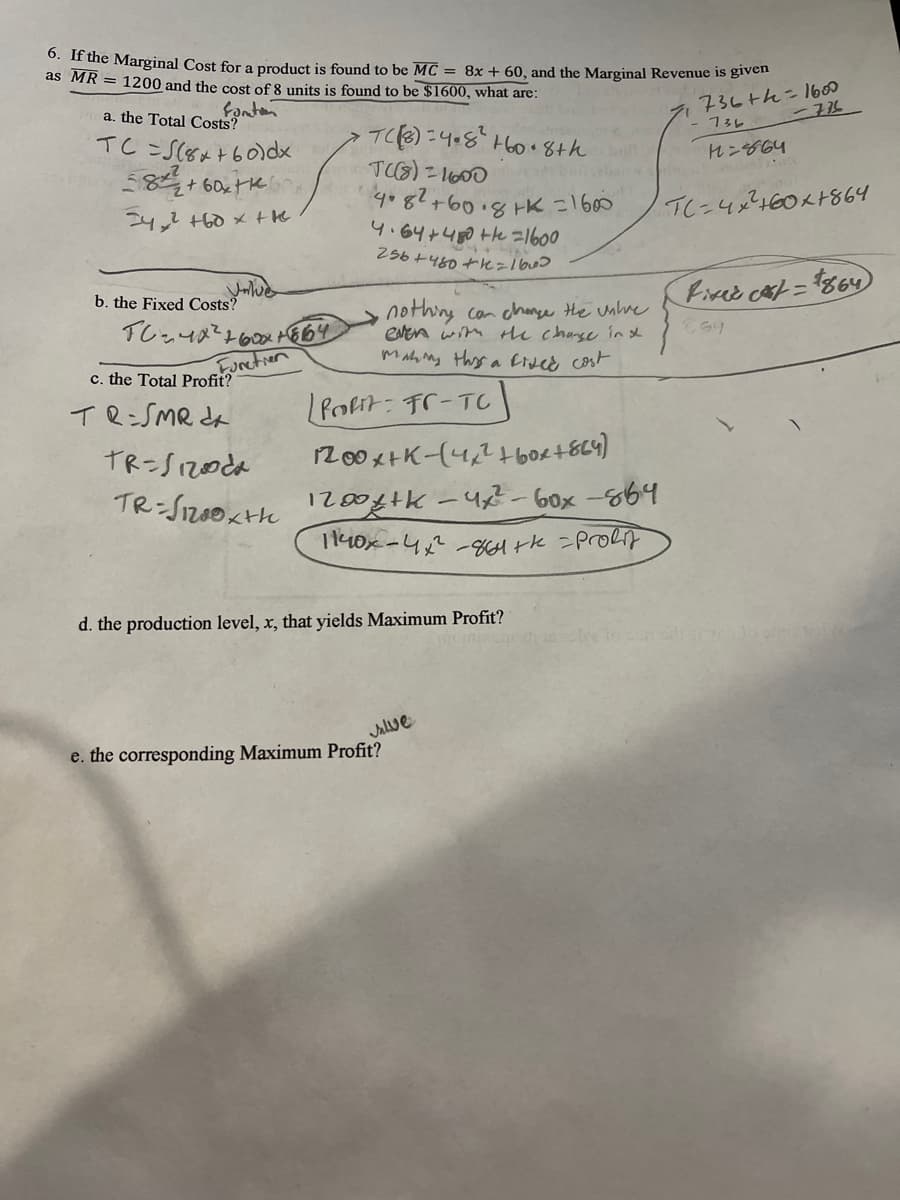 6. If the Marginal Cost for a product is found to be MC = 8x + 60, and the Marginal Revenue is given
as MR = 1200 and the cost of 8 units is found to be $1600, what are:
a. the Total Costs?
TC = ∫(8x + 60)dx
= 8x²/2 + 60x + K
= 4x² + 60x + K
TC(8) = 4•8² + 60•8 + k
TC(8) = 1600
4•8² + 60•8 + K = 1600
4•64 + 480 + k = 1600
256 + 480 + k = 1600
736 + k = 1600
- 736 - 736
K = 864
TC = 4x² + 60x + 864
Value
b. the Fixed Costs?
TC = 4x² + 60x + 864
nothing can change the value
even with the change in x
making this a fixed cost
Fixed cost = $864
Function
c. the Total Profit?
TR = ∫MR dx
TR = ∫1200dx
TR = ∫1200x + k
Profit = TR - TC
1200x + K - (4x² + 60x + 864)
1200x + k - 4x² - 60x - 864
1140x - 4x² - 864 + k = Profit
d. the production level, x, that yields Maximum Profit?
value
e. the corresponding Maximum Profit?